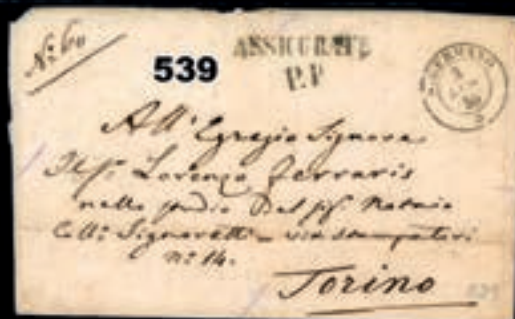 N.° 60
539
ASSICURATE
P.P
All' Egregio Signore
Il Sig. Lorenzo Ferraris
nello studio Del Sig. Notaio
Coll: Signoretti - via Stampatori
N.° 14.
Torino
539